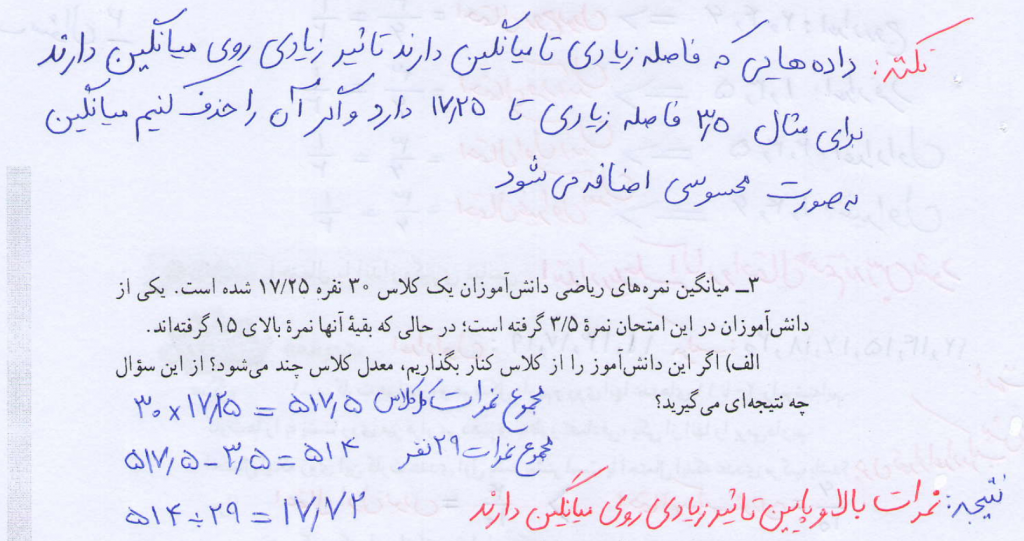 نکته: داده هایی که فاصله زیادی تا میانگین دارند تاثیر زیادی روی میانگین دارند
برای مثال ۳٫۵ فاصله زیادی تا ۱۷٫۲۵ دارد و اگر آن را حذف کنیم میانگین
به صورت محسوسی اضافه می شود
۳ــ میانگین نمره‌های ریاضی دانش‌آموزان یک کلاس ۳۰ نفره ۱۷/۲۵ شده است. یکی از
دانش‌آموزان در این امتحان نمرهٔ ۳/۵ گرفته است؛ در حالی که بقیهٔ آنها نمرهٔ بالای ۱۵ گرفته‌اند.
الف) اگر این دانش‌آموز را از کلاس کنار بگذاریم، معدل کلاس چند می‌شود؟ از این سؤال
چه نتیجه‌ای می‌گیرید؟
مجموع نمرات کل کلاس ۳۰ × ۱۷٫۲۵ = ۵۱۷٫۵
مجموع نمرات ۲۹ نفر ۵۱۷٫۵ - ۳٫۵ = ۵۱۴
۵۱۴ ÷ ۲۹ = ۱۷٫۷۲
نتیجه: نمرات بالا و پایین تاثیر زیادی روی میانگین دارند